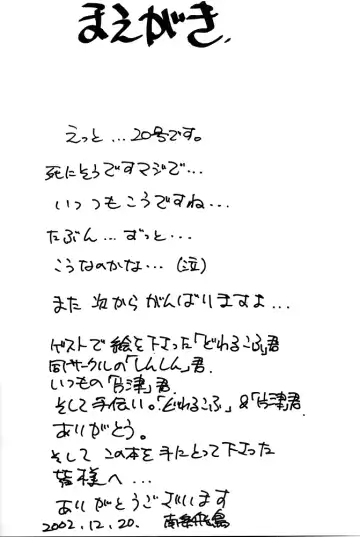 まえがき
えっと…20号です。
死にそうですマジで…
いつもこうですね…
たぶん…ずっと…
こうなのかな…(泣)
また次からがんばりますよ…
ゲストで絵を下さった「どわるこふ」君
同サークルの「しんしん」君
いつもの「片津」君
そして手伝い。「どわるこふ」&「片津」君
ありがとう。
そしてこの本を手にとって下さった
皆様へ…
ありがとうございます
2002.12.20. 南条飛鳥